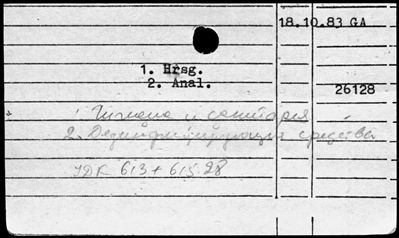 18.10.83 GA
1. Hrsg.
2. Anal.
26128
1. Гигиена и санитария
2. Дезинфицирующие средства
УДК 613 + 615.28